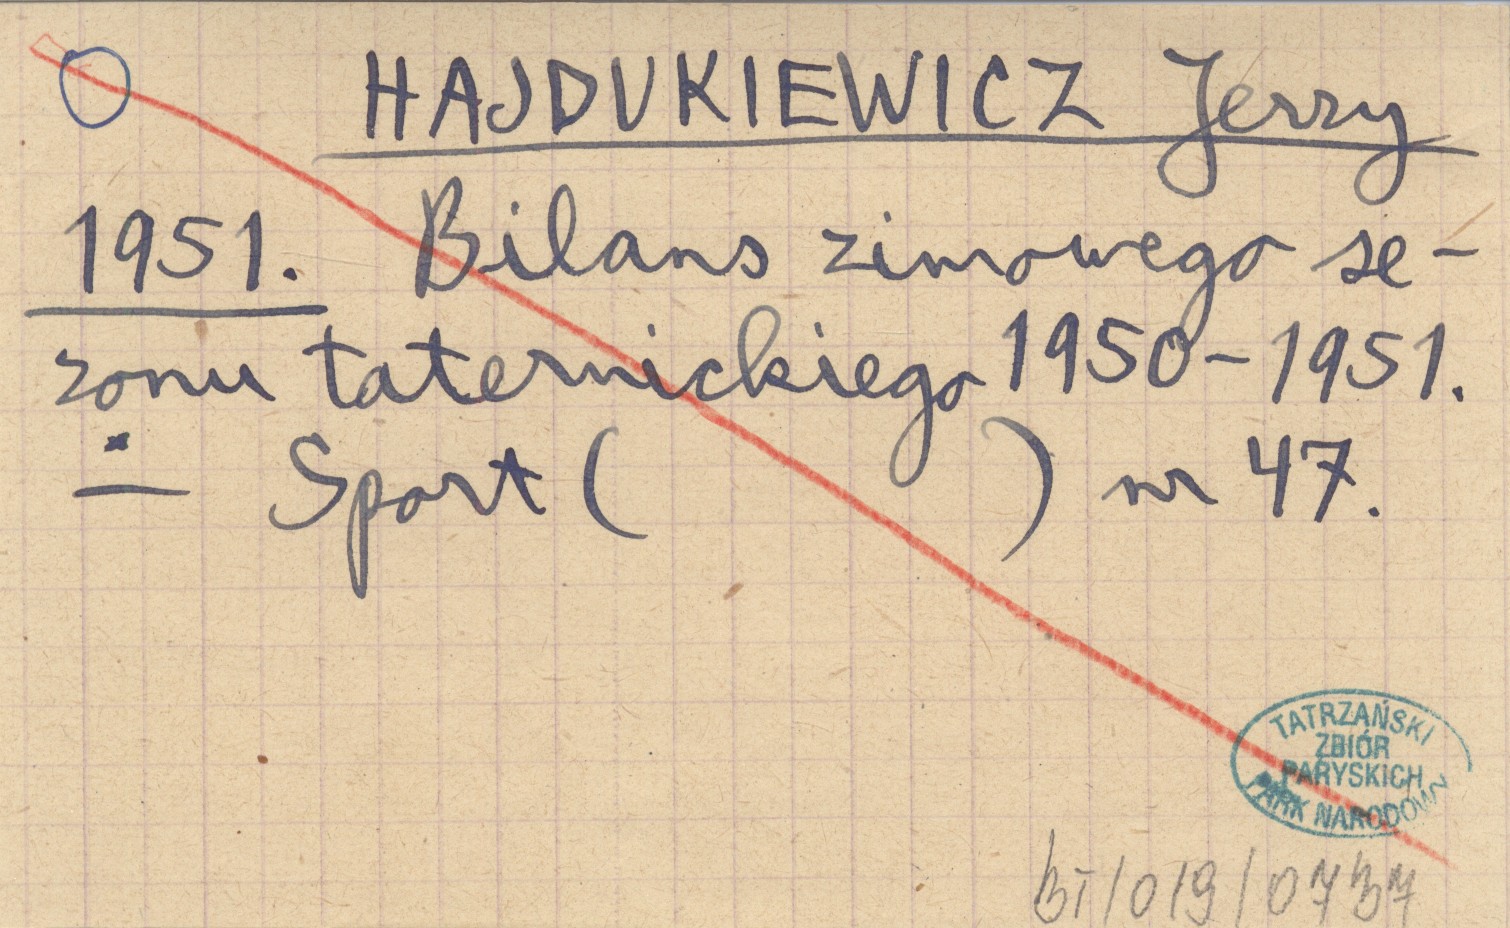 HAJDUKIEWICZ Jerzy
1951. Bilans zimowego se-
zonu taternickiego 1950-1951.
— Sport ( ) nr 47.
TATRZAŃSKI
ZBIÓR
PARYSKICH
PARK NARODOWY
BT/019/0737